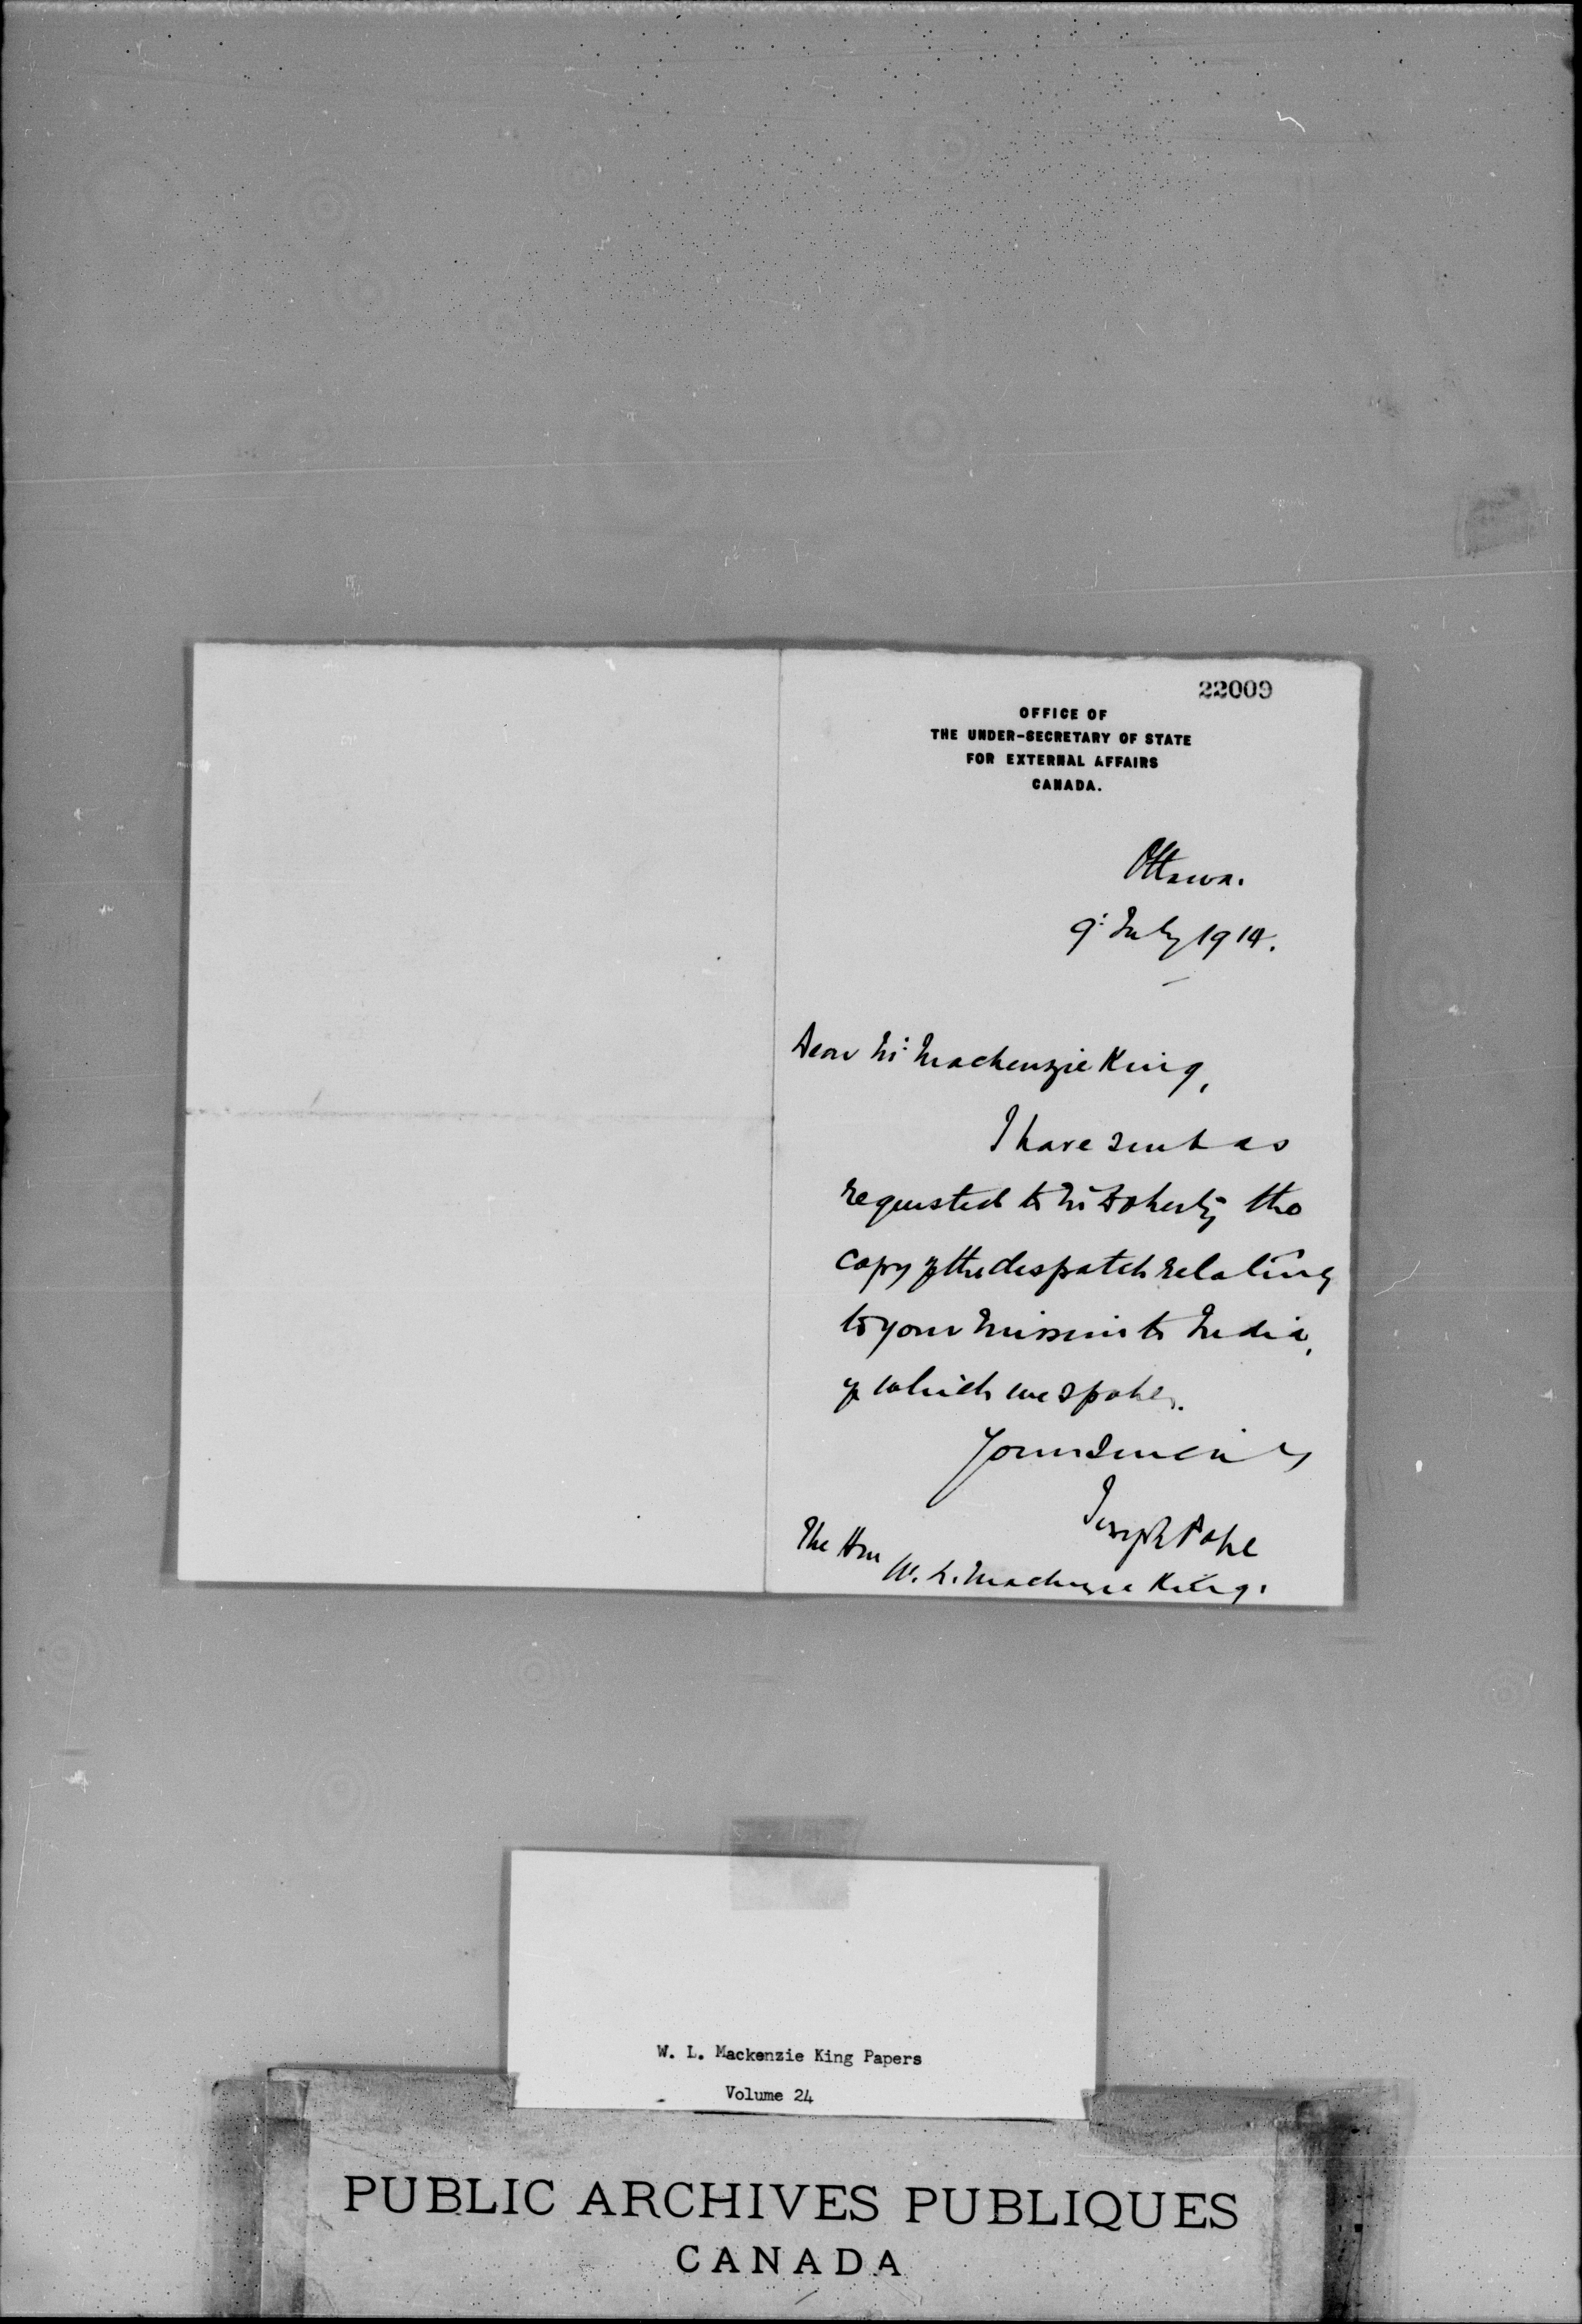 22009
OFFICE OF
THE UNDER-SECRETARY OF STATE
FOR EXTERNAL AFFAIRS
CANADA.
Ottawa.
9: July 1914.
Dear Mr: Mackenzie King,
I have sent as
requested to Mr Doherty the
copy of the despatch relating
to your mission to India,
of which we spoke.
Yours sincerely
Joseph Pope
The Hon
W. L. Mackenzie King.
W. L. Mackenzie King Papers
Volume 24
PUBLIC ARCHIVES PUBLIQUES
CANADA